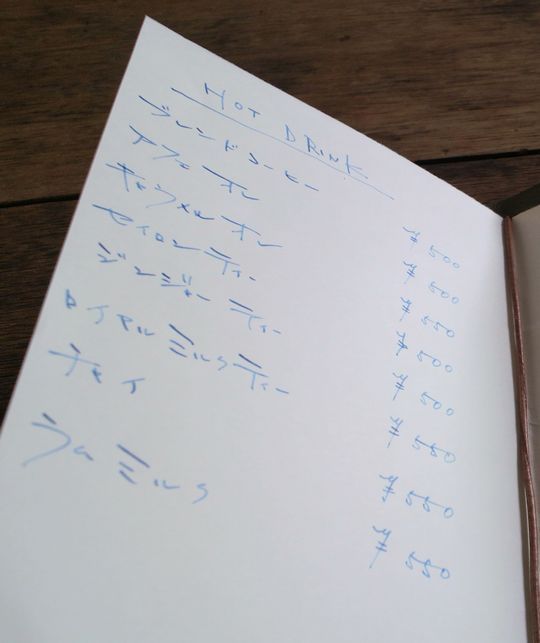 HOT DRINK
ブレンドコーヒー ¥500
カフェ オレ ¥500
キャラメル オレ ¥550
セイロン ティー ¥500
ジンジャー ティー ¥500
ロイヤル ミルクティー ¥550
チャイ ¥550
ラム ミルク ¥550